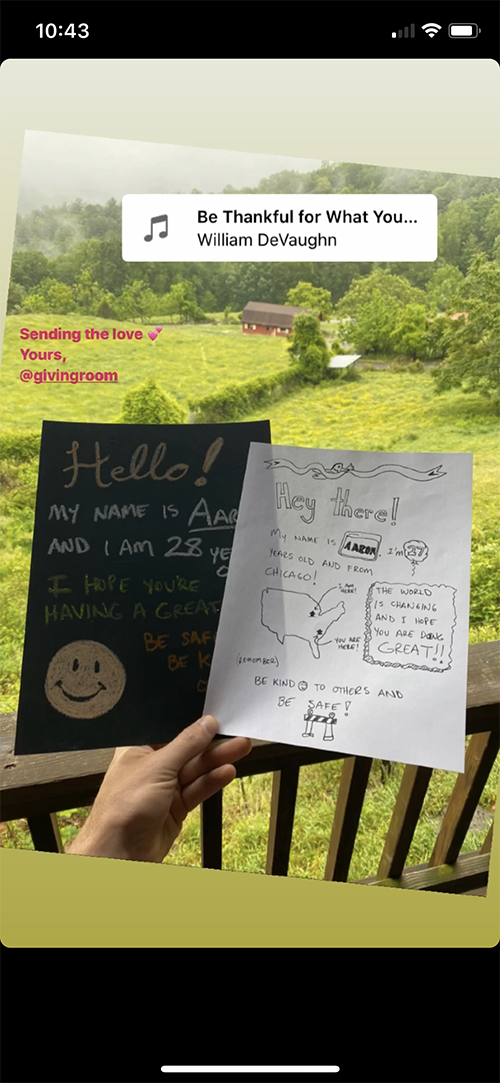 10:43
Be Thankful for What You...
William DeVaughn
Sending the love
Yours,
@givingroom
Hello!
MY NAME IS AAR
AND I AM 28 YE
I HOPE YOU'RE
HAVING A GREAT
BE SAF
BE K
Hey there!
MY NAME IS AARON, I'M 27
YEARS OLD AND FROM
CHICAGO!
I AM
HERE!
YOU ARE
HERE!
(REMEMBER)
THE WORLD
IS CHANGING
AND I HOPE
YOU ARE DOING
GREAT!!
BE KIND TO OTHERS AND
BE SAFE!